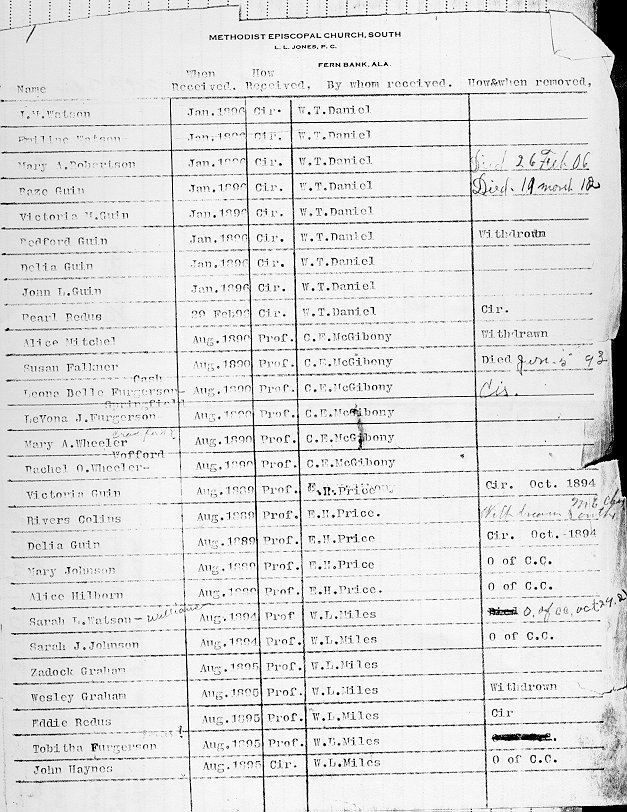 METHODIST EPISCOPAL CHURCH, SOUTH
L. L. JONES, P. C.
FERN BANK, ALA.
Name When Received. How Received, By whom received. How&when removed,
Watson Jan.1896 Cir. W.T.Daniel
Watson Jan. Cir. W.T.Daniel
Mary A.Robertson Jan. Cir. W.T.Daniel Died 26 Feb 06
Guin Jan.1896 Cir. W.T.Daniel Died. 19 march 12
Victoria M.Guin Jan.1896 Cir. W.T.Daniel
Bedford Guin Jan.1896 Cir. W.T.Daniel Withdrown
Delia Guin Jan.1896 Cir. W.T.Daniel
John L.Guin Jan.1896 Cir. W.T.Daniel
Pearl Redus 29 Feb96 Cir. W.T.Daniel Cir.
Alice Mitchel Aug.1890 Prof. C.E.McGibony Withdrawn
Susan Falkner Aug.1890 Prof. C.E.McGibony Died 5 93
Cash
Leone Belle Furgerson- Aug.1890 Prof. C.E.McGibony Cir.
Springfield
LeVona J.Furgerson Aug.1890 Prof. C.E.McGibony
Mary A.Wheeler Aug.1890 Prof. C.E.McGibony
Wofford
Rachel O.Wheeler- Aug.1890 Prof. C.E.McGibony
Victoria Guin Aug.1889 Prof. E.H.Price Cir. Oct. 1894
Rivers Colins Aug.1889 Prof. E.H.Price. Withdrawn
Delia Guin Aug.1889 Prof. E.H.Price. Cir. Oct. 1894
Mary Johnson Aug. Prof. E.H.Price O of C.C.
Alice Hilborn Aug. Prof. E.H.Price. O of C.C.
Sarah L.Watson - Aug.1894 Prof W.L.Miles O. of CC. oct
Sarah J.Johnson Aug.1894 Prof. W.L.Miles O of C.C.
Zadock Graham Aug.1895 Prof. W.L.Miles
Wesley Graham Aug.1895 Prof. W.L.Miles Withdrown
Eddie Redus Aug.1895 Prof. W.L.Miles Cir
Tobitha Furgerson Aug.1895 Prof. W.L.Miles
John Haynes Aug.1895 Cir. W.L.Miles O of C.C.